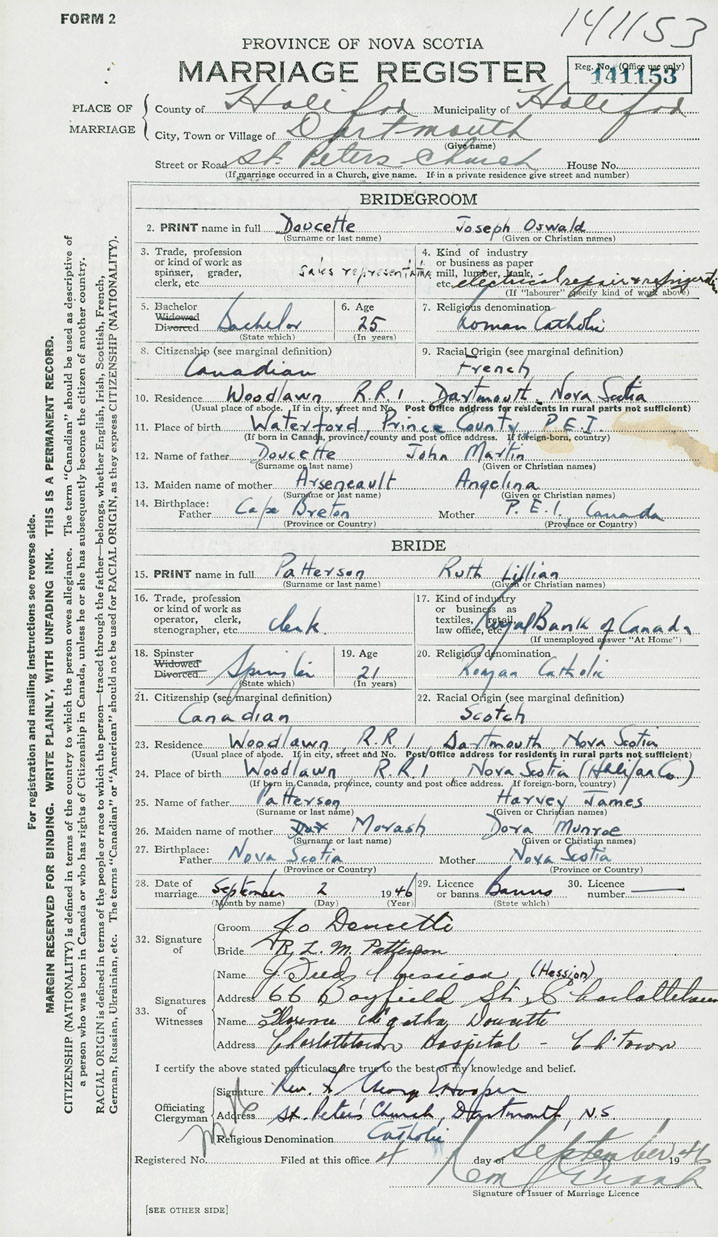 FORM 2
141153
PROVINCE OF NOVA SCOTIA
MARRIAGE REGISTER
Reg. No. (Office use only)
141153
PLACE OF MARRIAGE
County of Halifax Municipality of Halifax
City, Town or Village of Dartmouth
(Give name)
Street or Road St. Peters Church House No.
(If marriage occurred in a Church, give name. If in a private residence give street and number)
BRIDEGROOM
2. PRINT name in full Doucette Joseph Oswald
(Surname or last name) (Given or Christian names)
3. Trade, profession or kind of work as spinner, grader, clerk, etc. Sales representative
4. Kind of industry or business as paper mill, lumber, bank, etc. electrical repair & refrigeration
(If "labourer" specify kind of work above)
5. Bachelor Widowed Divorced Bachelor
(State which)
6. Age 25
(In years)
7. Religious denomination Roman Catholic
8. Citizenship (see marginal definition) Canadian
9. Racial Origin (see marginal definition) French
10. Residence Woodlawn R.R.1 Dartmouth, Nova Scotia
(Usual place of abode. If in city, street and No. Post Office address for residents in rural parts not sufficient)
11. Place of birth Waterford, Prince County, P.E.I.
(If born in Canada, province, county and post office address. If foreign-born, country)
12. Name of father Doucette John Martin
(Surname or last name) (Given or Christian names)
13. Maiden name of mother Arseneault Angelina
(Surname or last name) (Given or Christian names)
14. Birthplace: Father Cape Breton Mother P.E.I., Canada
(Province or Country) (Province or Country)
BRIDE
15. PRINT name in full Patterson Ruth Lillian
(Surname or last name) (Given or Christian names)
16. Trade, profession or kind of work as operator, clerk, stenographer, etc. clerk
17. Kind of industry or business as textiles, retail, law office, etc. Royal Bank of Canada
(If unemployed answer "At Home")
18. Spinster Widowed Divorced Spinster
(State which)
19. Age 21
(In years)
20. Religious denomination Roman Catholic
21. Citizenship (see marginal definition) Canadian
22. Racial Origin (see marginal definition) Scotch
23. Residence Woodlawn, R.R.1, Dartmouth, Nova Scotia
(Usual place of abode. If in city, street and No. Post Office address for residents in rural parts not sufficient)
24. Place of birth Woodlawn R.R.1 Nova Scotia (Halifax Co.)
(If born in Canada, province, county and post office address. If foreign-born, country)
25. Name of father Patterson Harvey James
(Surname or last name) (Given or Christian names)
26. Maiden name of mother Morash Dora Munroe
(Surname or last name) (Given or Christian names)
27. Birthplace: Father Nova Scotia Mother Nova Scotia
(Province or Country) (Province or Country)
28. Date of marriage September 2 1946
(Month by name) (Day) (Year)
29. Licence or banns Banns
(State which)
30. Licence number
32. Signature of
Groom Jo Doucette
Bride R. L. M. Patterson
33. Signatures of Witnesses
Name J. Fred Hession (Hession)
Address 66 Bayfield St., Charlottetown
Name Florence Agatha Doucette
Address Charlottetown Hospital - Ch'Town
I certify the above stated particulars are true to the best of my knowledge and belief.
Officiating Clergyman
Signature Rev. Hooper
Address St. Peter's Church, Dartmouth, N.S
Religious Denomination Catholic
Registered No. Filed at this office 4 day of September 1946
Signature of Issuer of Marriage Licence
[SEE OTHER SIDE]
For registration and mailing instructions see reverse side.
MARGIN RESERVED FOR BINDING. WRITE PLAINLY, WITH UNFADING INK. THIS IS A PERMANENT RECORD.
CITIZENSHIP (NATIONALITY) is defined in terms of the country to which the person owes allegiance. The term "Canadian" should be used as descriptive of
a person who was born in Canada or who has rights of Citizenship in Canada, unless he or she has subsequently become the citizen of another country.
RACIAL ORIGIN is defined in terms of the people or race to which the person—traced through the father—belongs, whether English, Irish, Scottish, French,
German, Russian, Ukrainian, etc. The terms "Canadian" or "American" should not be used for RACIAL ORIGIN, as they express CITIZENSHIP (NATIONALITY).